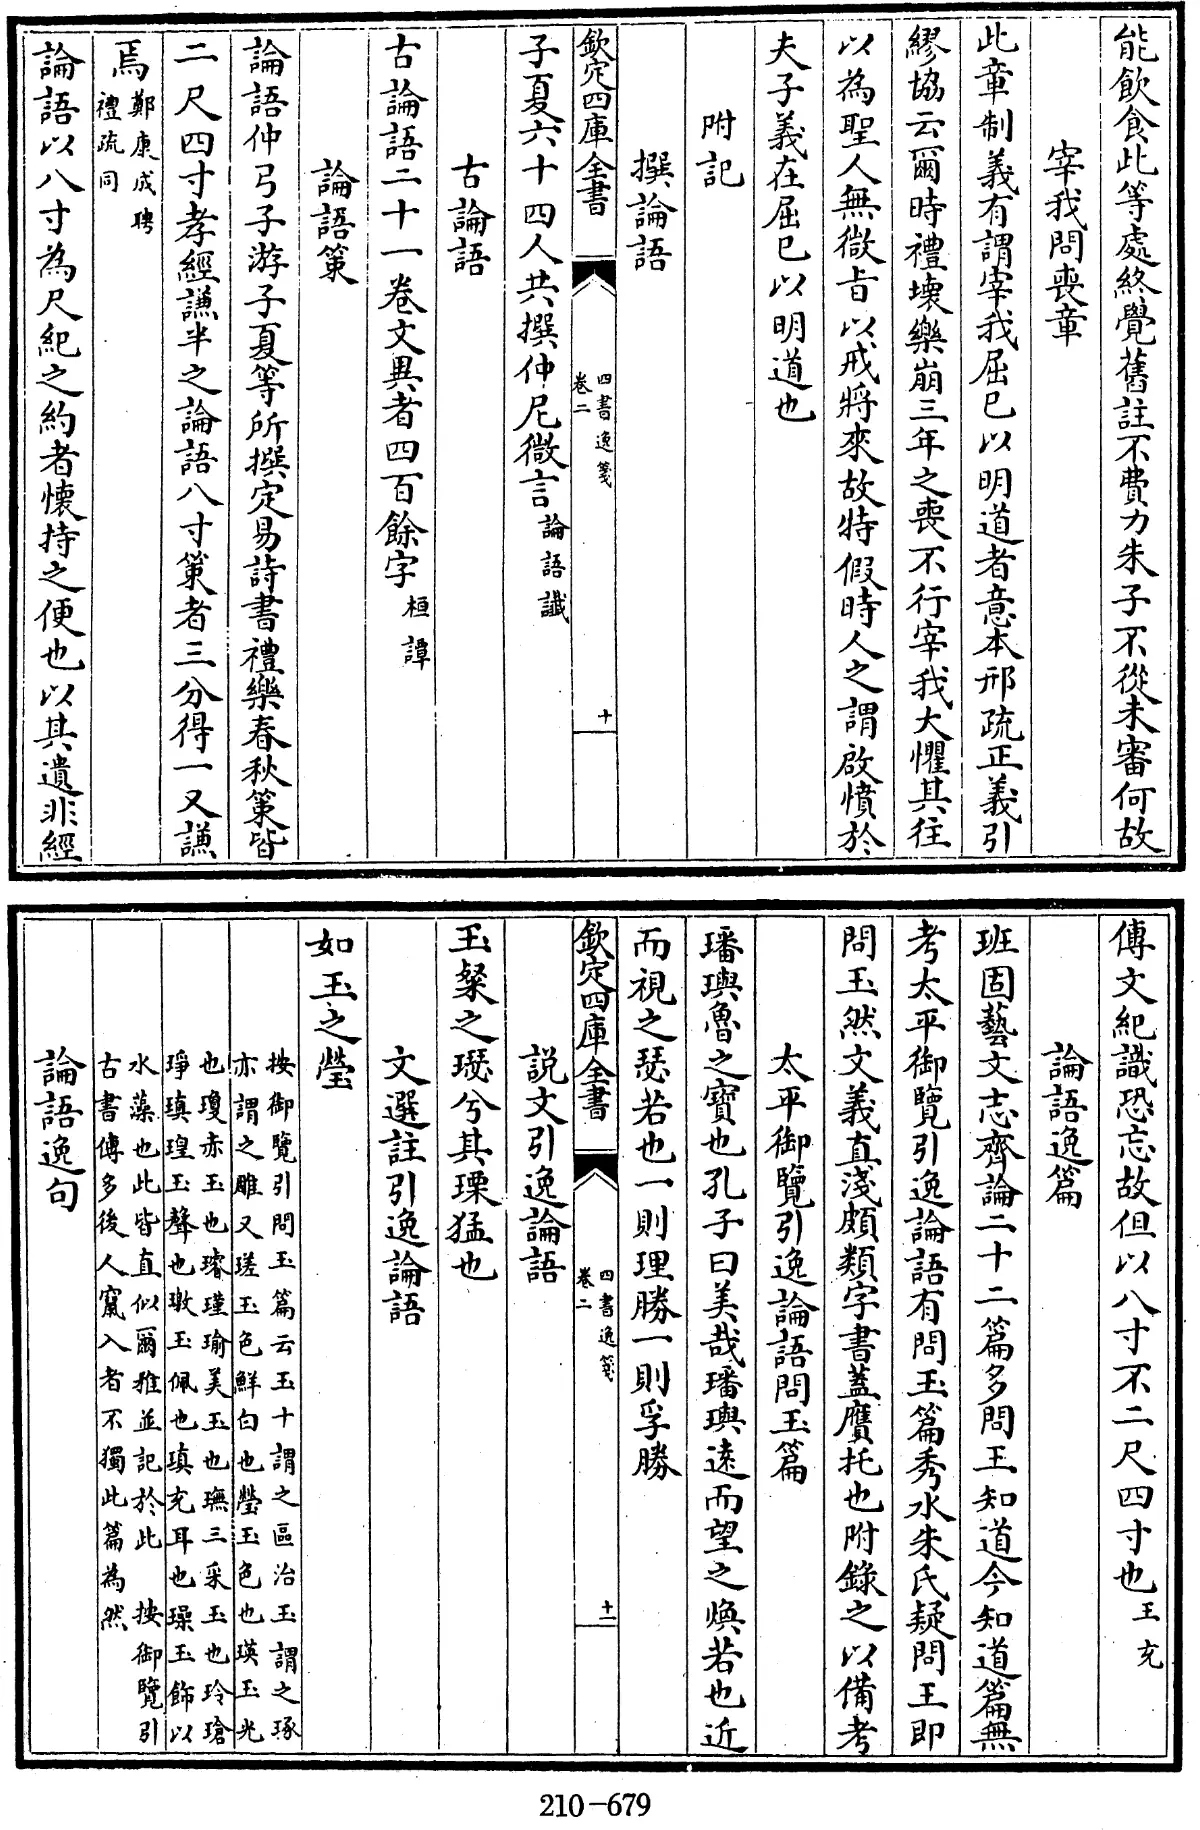 能飲食此等處終覺舊註不費力朱子不從未審何故
宰我問喪章
此章制義有謂宰我屈已以明道者意本邢疏正義引
繆協云爾時禮壞樂崩三年之喪不行宰我大懼其往
以為聖人無微旨以戒將來故特假時人之謂啟憤於
夫子義在屈已以明道也
附記
撰論語
欽定四庫全書
四書逸箋
卷二
十
子夏六十四人共撰仲尼微言論語讖
古論語
古論語二十一卷文異者四百餘字桓譚
論語策
論語仲弓子游子夏等所撰定易詩書禮樂春秋策皆
二尺四寸孝經謙半之論語八寸策者三分得一又謙
焉鄭康成聘
禮疏同
論語以八寸為尺紀之約者懷持之便也以其遺非經
傳文紀識恐忘故但以八寸不二尺四寸也王充
論語逸篇
班固藝文志齊論二十二篇多問王知道今知道篇無
考太平御覽引逸論語有問玉篇秀水朱氏疑問王即
問玉然文義直淺頗類字書蓋贋托也附錄之以備考
太平御覽引逸論語問玉篇
璠璵魯之寶也孔子曰美哉璠璵遠而望之煥若也近
而視之瑟若也一則理勝一則孚勝
欽定四庫全書
四書逸箋
卷二
十一
說文引逸論語
玉粲之瑟兮其瑮猛也
文選註引逸論語
如玉之瑩
按御覽引問玉篇云玉十謂之區治玉謂之琢
亦謂之雕又瑳玉色鮮白也瑩玉色也瑛玉光
也瓊赤玉也璿瑾瑜美玉也璑三采玉也玲瑲
琤瑱瑝玉聲也璬玉佩也瑱充耳也璪玉飾以
水藻也此皆直似爾雅並記於此 按御覽引
古書傳多後人竄入者不獨此篇為然
論語逸句
210-679